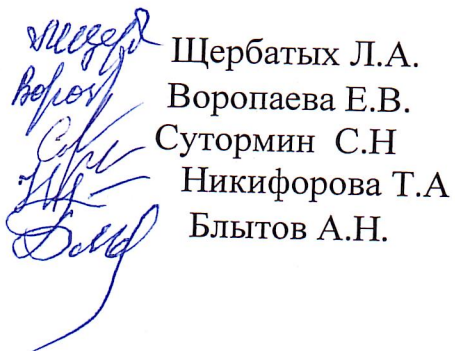 Щербатых Л.А.
Воропаева Е.В.
Сутормин С.Н
Никифорова Т.А
Блытов А.Н.